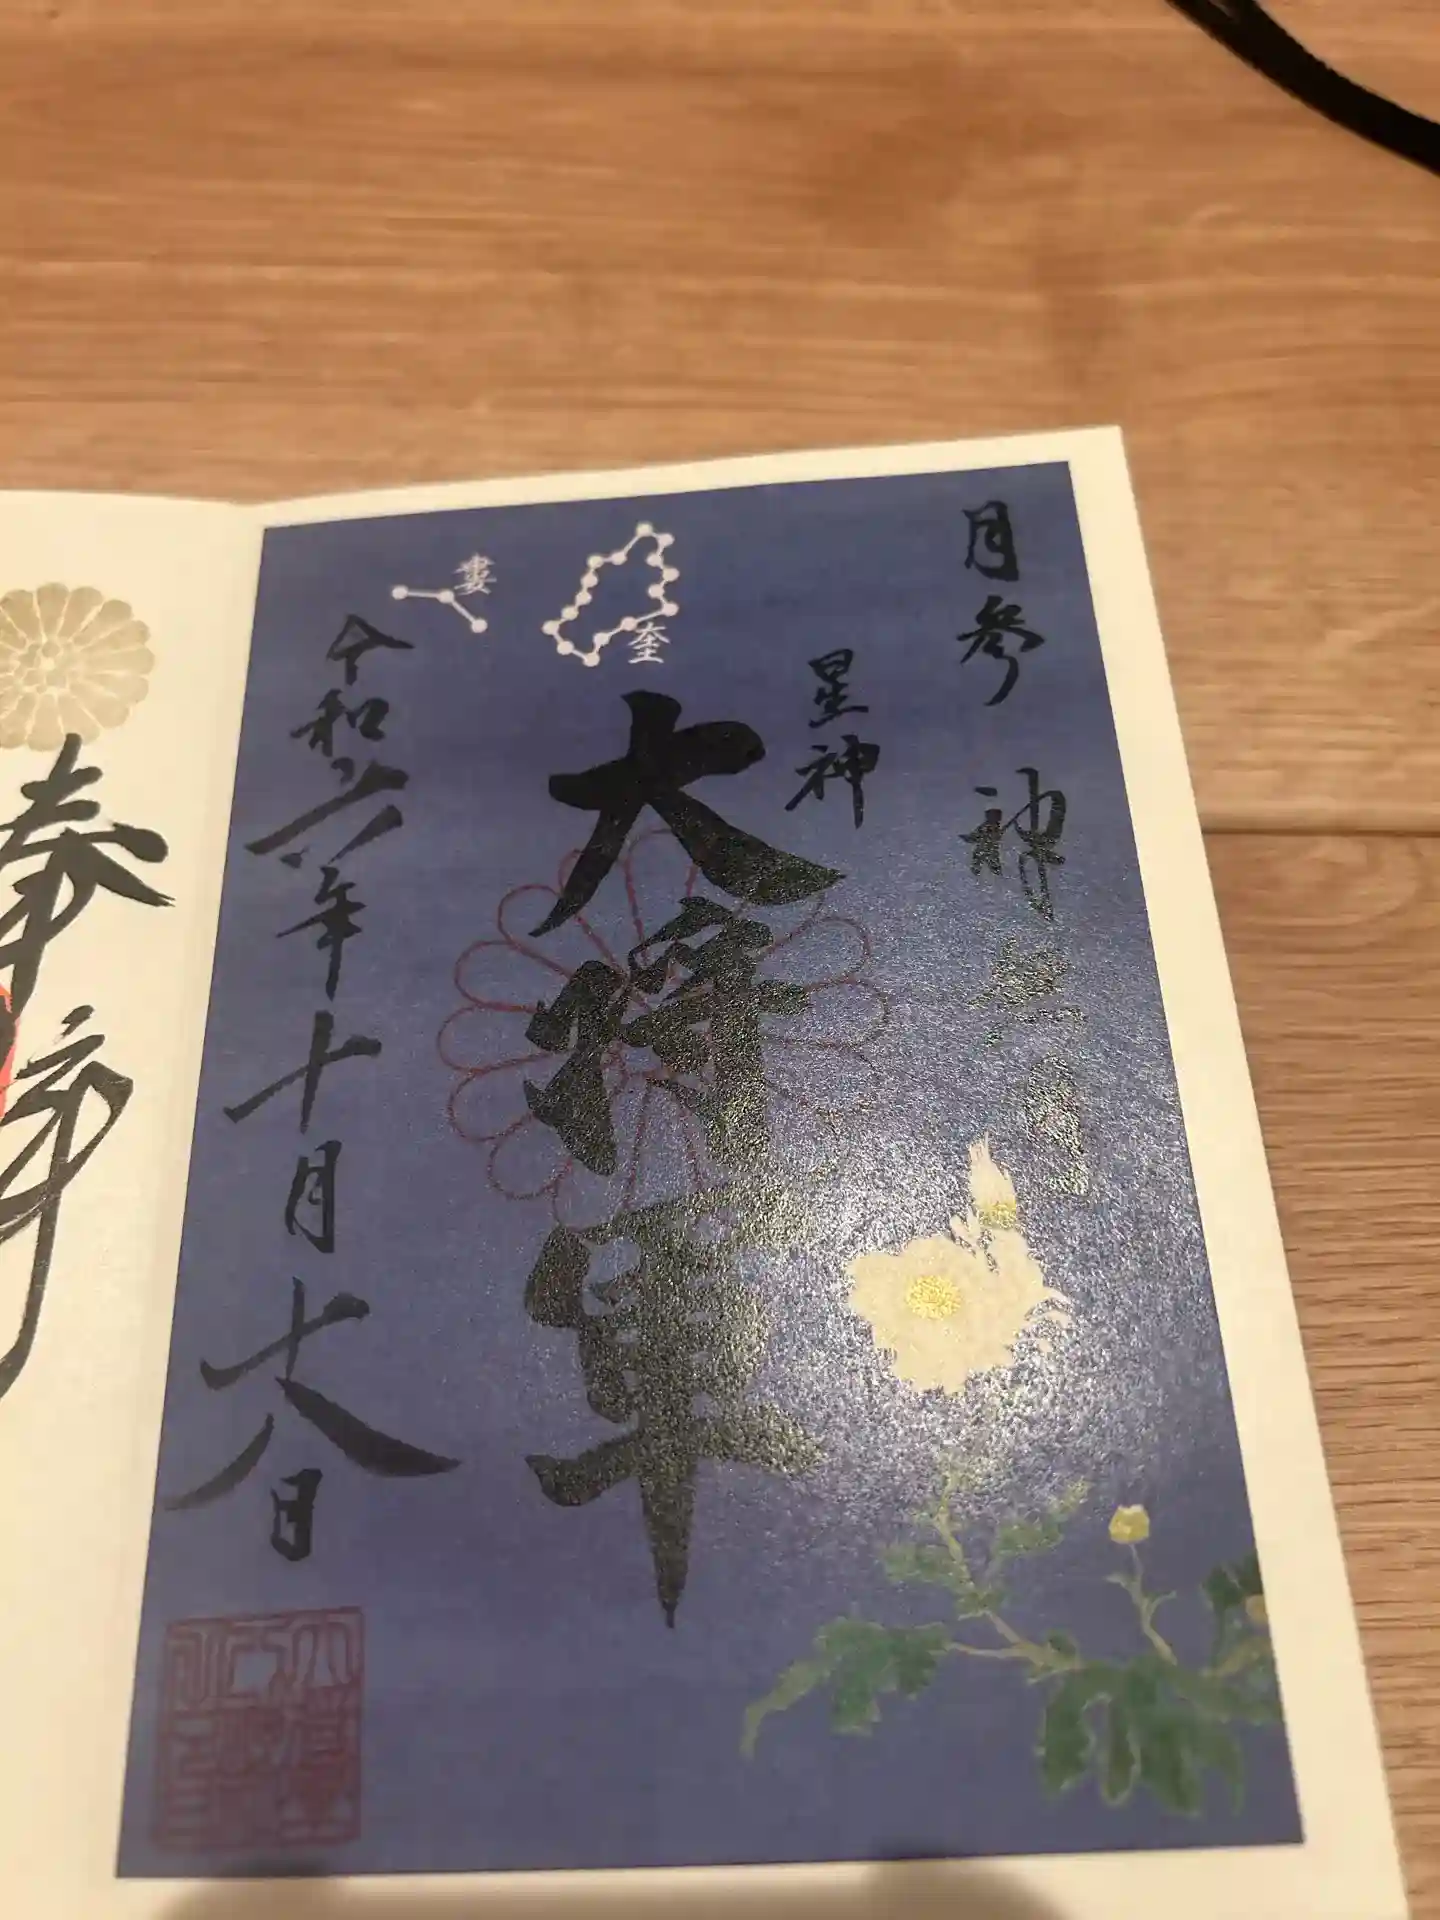 月参 神無月
星神
大将軍
奎
婁
令和六年十月十八日
奉拝